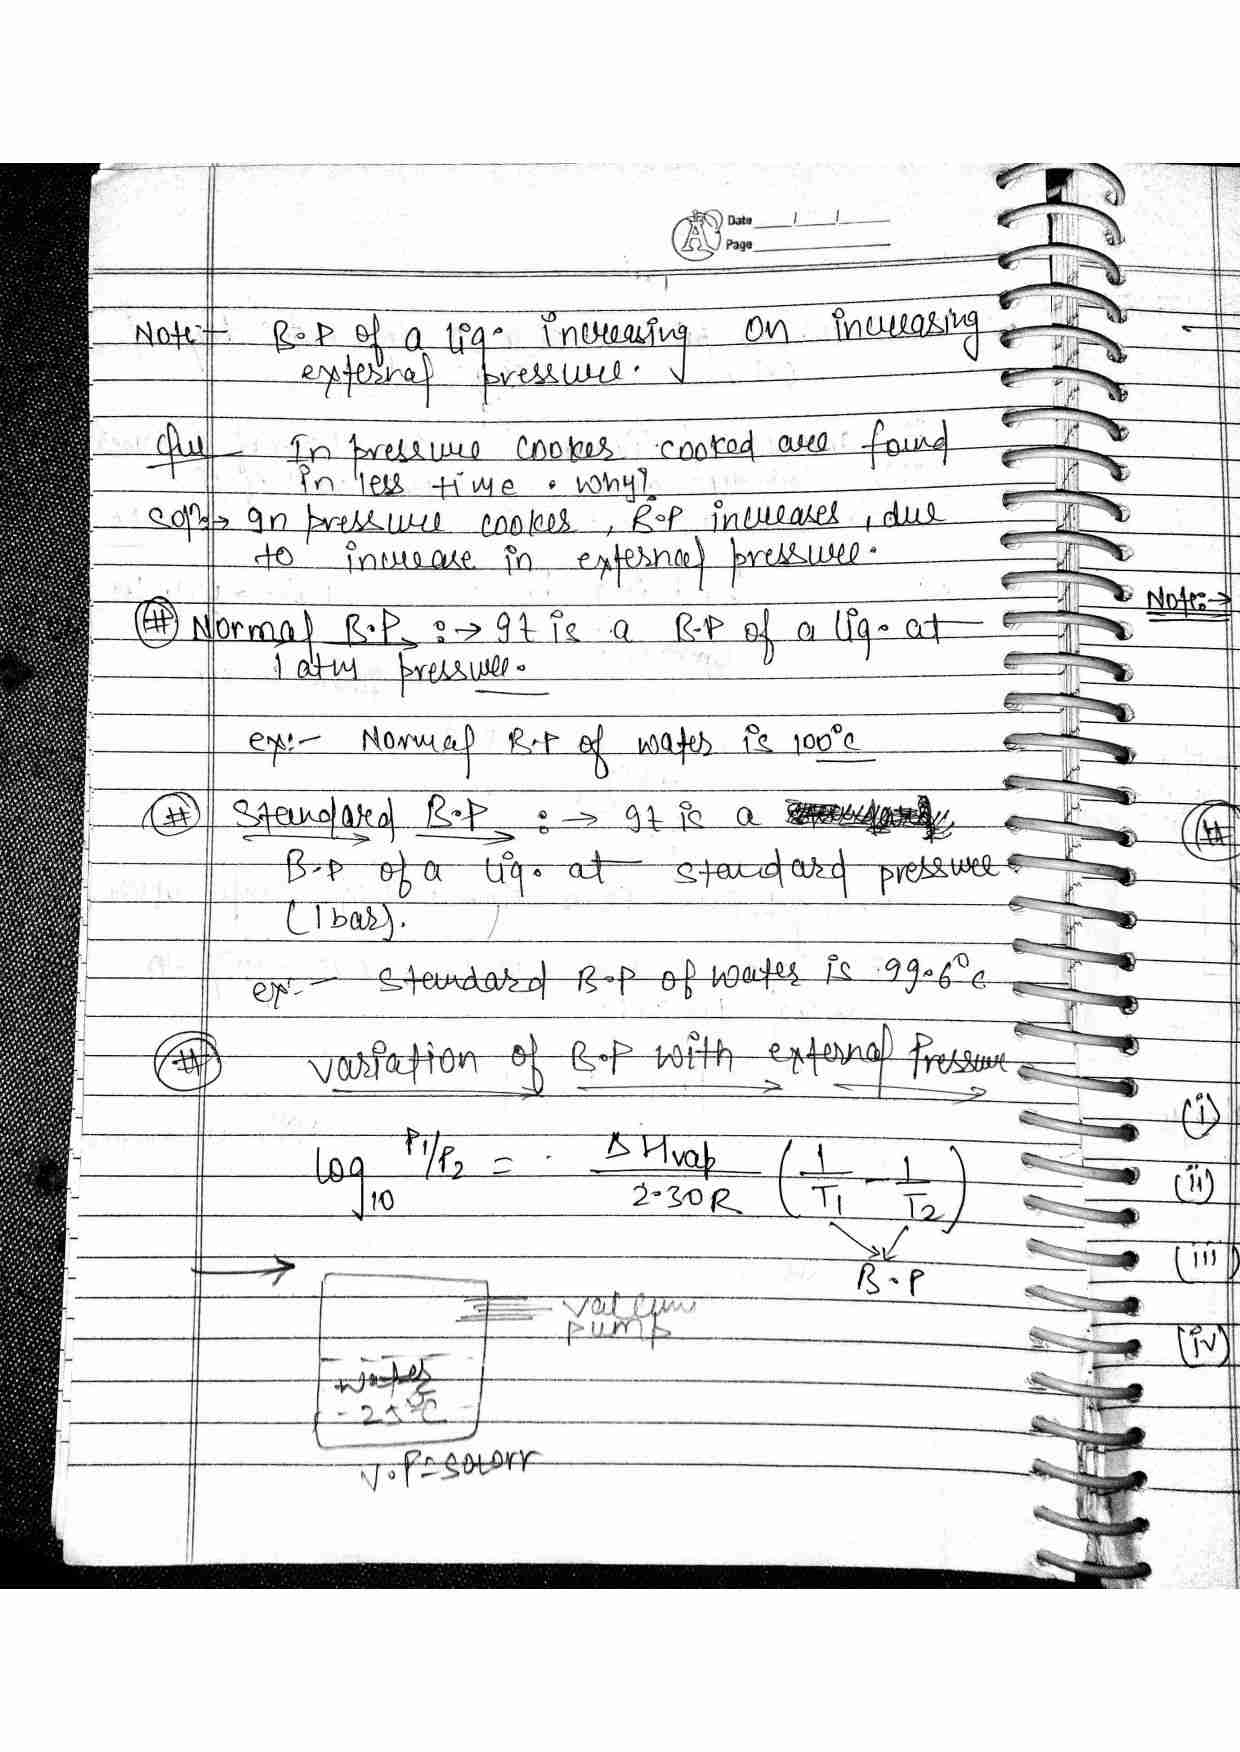 Date / /
Page
Note:- B.P of a liq. increasing on increasing
external pressure.
Que In pressure cooker cooked are found
in less time. why?
Soln:→ In pressure cooker, B.P increases, due
to increase in external pressure.
# Normal B.P. :→ It is a B.P of a liq. at
1 atm pressure.
ex:- Normal B.P of water is 100°C
# Standard B.P :→ It is a
B.P of a liq. at standard pressure
(1 bar).
ex:- Standard B.P of water is 99.6°C
# Variation of B.P with external Pressure
log10 P1/P2 = ΔHvap/2.30R (1/T1 - 1/T2)
B.P
→
Vaccum
pump
water
25°C
V.P =
Note:→
#
(i)
(ii)
(iii)
(iv)